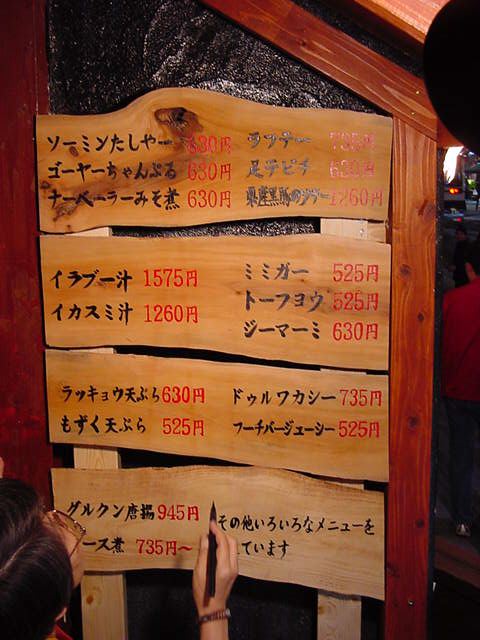 ソーミンたしやー 630円
ゴーヤーちゃんぷる 630円
ナーベーラーみそ煮 630円
ラフテー 735円
足テビチ 630円
県産黒豚のラフテー 1260円
イラブー汁 1575円
イカスミ汁 1260円
ミミガー 525円
トーフヨウ 525円
ジーマーミ 630円
ラッキョウ天ぷら 630円
もずく天ぷら 525円
ドゥルワカシー 735円
フーチバージューシー 525円
グルクン唐揚 945円
ース煮 735円〜
その他いろいろなメニューを
ています